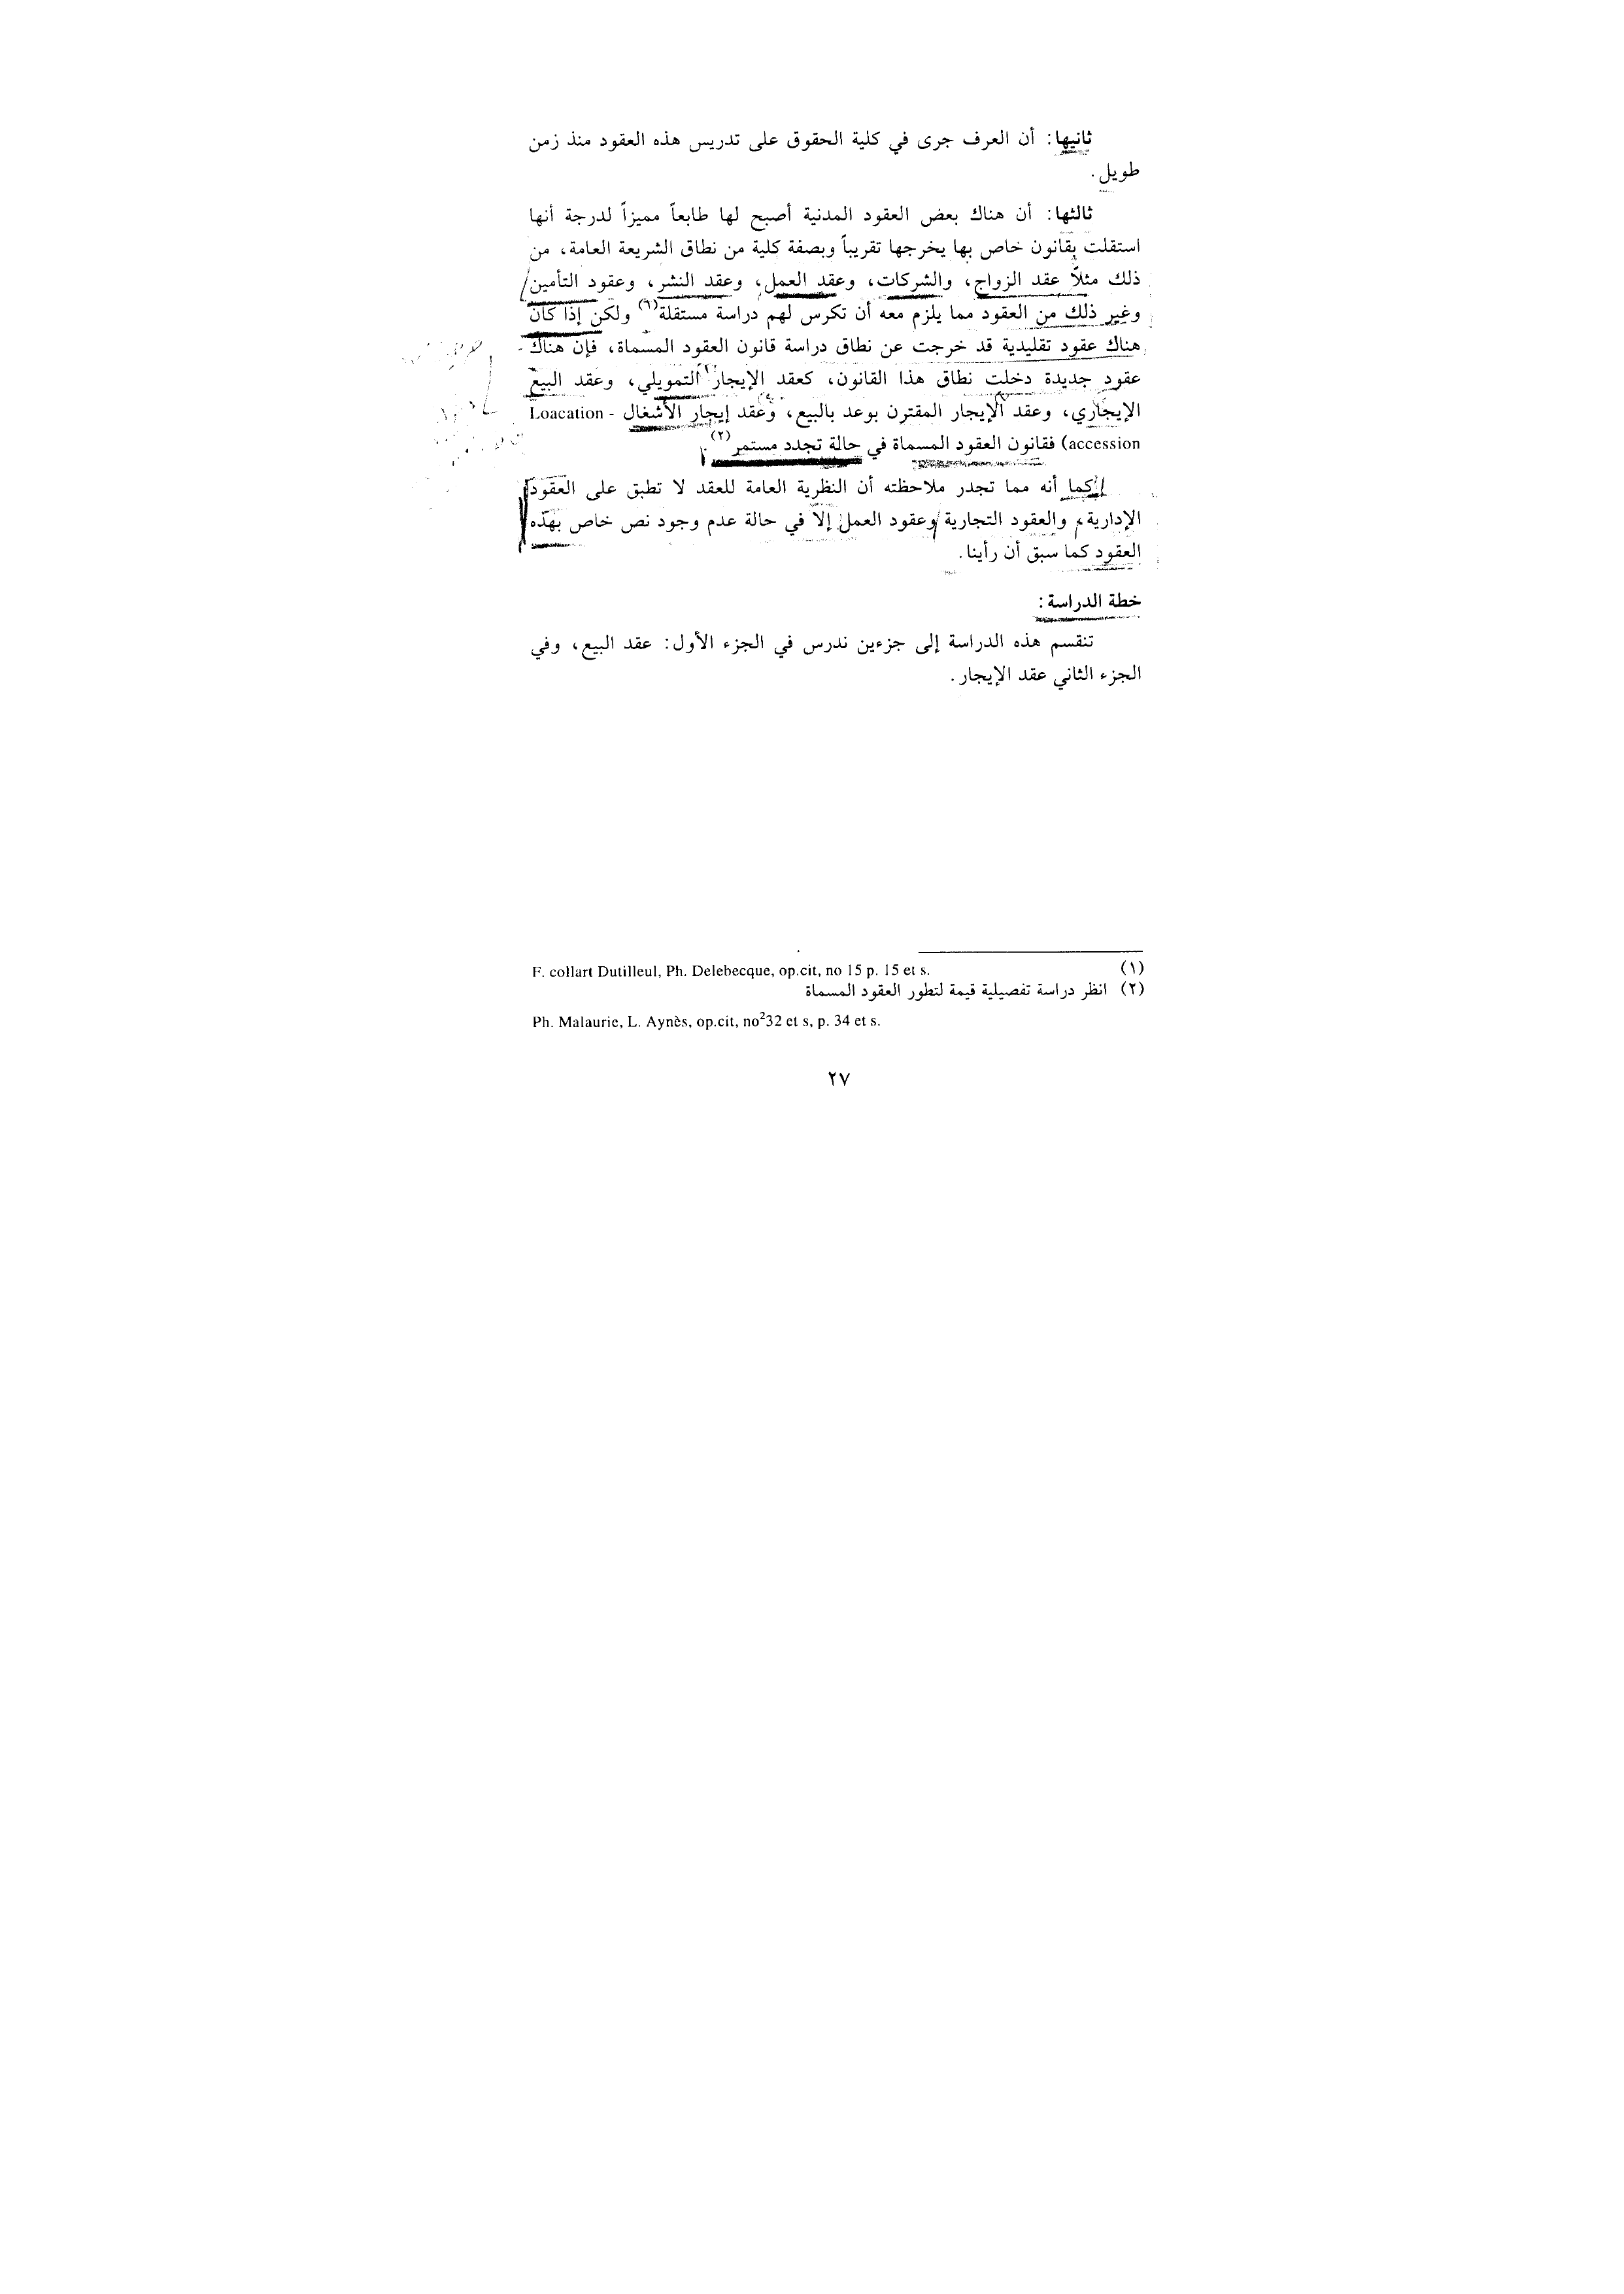 ثانيها: أن العرف جرى في كلية الحقوق على تدريس هذه العقود منذ زمن
طويل.
ثالثها: أن هناك بعض العقود المدنية أصبح لها طابعاً مميزاً لدرجة أنها
استقلت بقانون خاص بها يخرجها تقريباً وبصفة كلية من نطاق الشريعة العامة، من
ذلك مثلاً عقد الزواج، والشركات، وعقد العمل، وعقد النشر، وعقود التأمين
وغير ذلك من العقود مما يلزم معه أن تكرس لهم دراسة مستقلة(١) ولكن إذا كان
هناك عقود تقليدية قد خرجت عن نطاق دراسة قانون العقود المسماة، فإن هناك
عقود جديدة دخلت نطاق هذا القانون، كعقد الإيجار التمويلي، وعقد البيع
الإيجاري، وعقد الإيجار المقترن بوعد بالبيع، وعقد إيجار الأشغال Loacation -
accession) فقانون العقود المسماة في حالة تجدد مستمر(٢).
كما أنه مما تجدر ملاحظته أن النظرية العامة للعقد لا تطبق على العقود
الإدارية، والعقود التجارية وعقود العمل إلا في حالة عدم وجود نص خاص بهذه
العقود كما سبق أن رأينا.
خطة الدراسة:
تنقسم هذه الدراسة إلى جزءين ندرس في الجزء الأول: عقد البيع، وفي
الجزء الثاني عقد الإيجار.
(١) F. collart Dutilleul, Ph. Delebecque, op.cit, no 15 p. 15 et s.
(٢) انظر دراسة تفصيلية قيمة لتطور العقود المسماة
Ph. Malaurie, L. Aynès, op.cit, no²32 et s, p. 34 et s.
٢٧